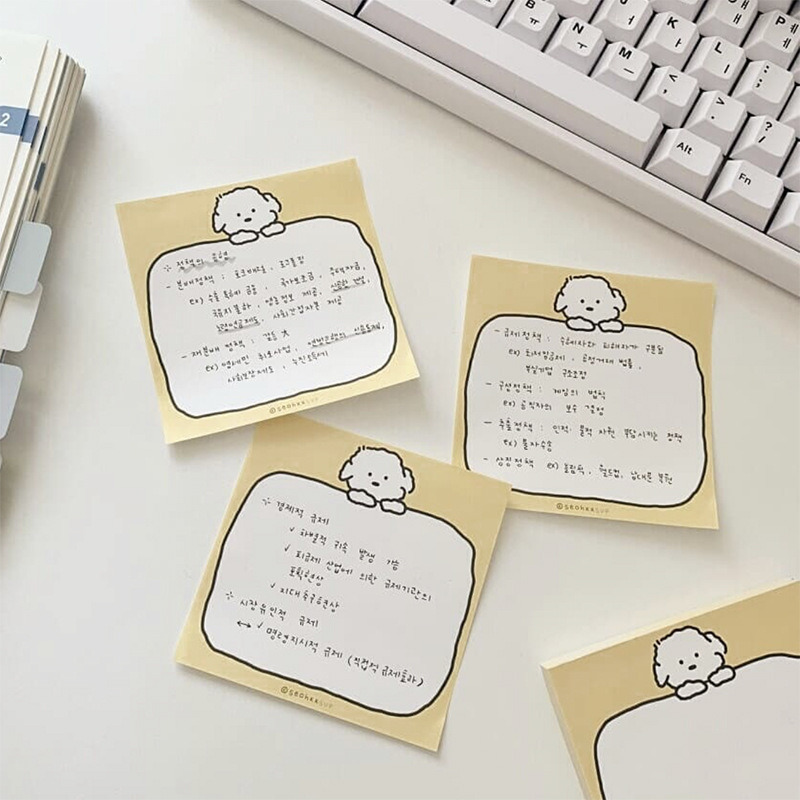 ∴ 정책의 유형
- 분배정책 : 로그롤링
ex) 수출 특혜 금융, 국가보조금, 주택자금,
국유지불하, 영농정보 제공, 신공항 건설,
사회간접자본 제공
- 재분배 정책 : 갈등 大
ex) 영세민 취로사업,
사회보장제도, 누진소득세
©seohxx
- 규제정책 : 수혜자와 피해자가 구분됨
ex) 최저임금제, 공정거래 법률,
부실기업 구조조정
- 구성정책 : 게임의 법칙
ex) 공직자의 보수 결정
- 추출정책 : 인적·물적 자원 부담시키는 정책
ex) 물자수송
- 상징정책 ex) 올림픽, 월드컵, 남대문 복원
©seohxx
∴ 경제적 규제
✓ 차별적 귀속 발생 가능
✓ 피규제 산업에 의한 규제기관의
포획현상
✓ 지대추구현상
∴ 시장유인적 규제
↔ ✓ 명령지시적 규제 (직접적 규제효과)
©seohxx
2
B ㅠ
N ㅜ
M ㅡ
J ㅓ
K ㅏ
L ㅣ
P ㅔ ㅖ
< ,
> .
: ;
? /
Alt
Fn